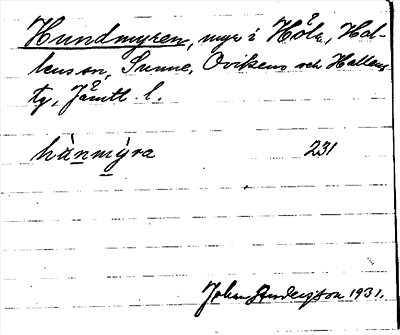 Hundmyren, myr i Höla, Hal-
lens sn, Sunne, Ovikens och Hallens
tg, Jämtl. l.
hùnmýra 231
Johan Andersson 1931.